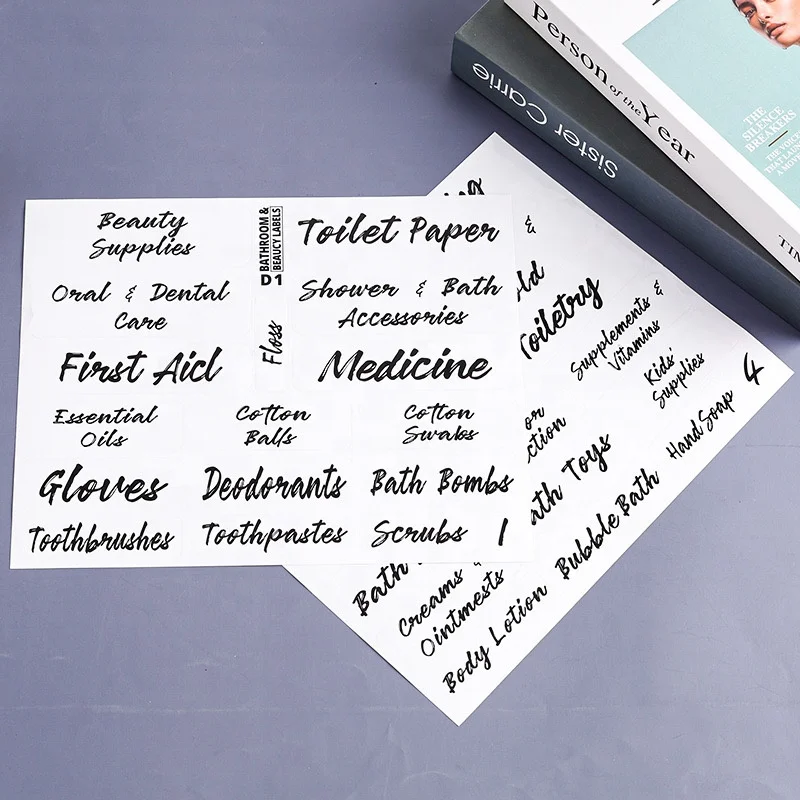 Beauty
Supplies
BATHROOM &
BEAUCY LABELS
D1
Toilet Paper
Oral & Dental
Care
Floss
Shower & Bath
Accessories
First Aid
Medicine
Essential
Oils
Cotton
Balls
Cotton
Swabs
Gloves
Deodorants
Bath Bombs
Toothbrushes
Toothpastes
Scrubs
1
&
Toiletry
Supplements &
Vitamins
Kids'
Supplies
4
Bath Toys
Hand Soap
Bath
Bubble Bath
Creams &
Ointmests
Body Lotion
Sister Carrie
Person of the Year
THE
SILENCE
BREAKERS